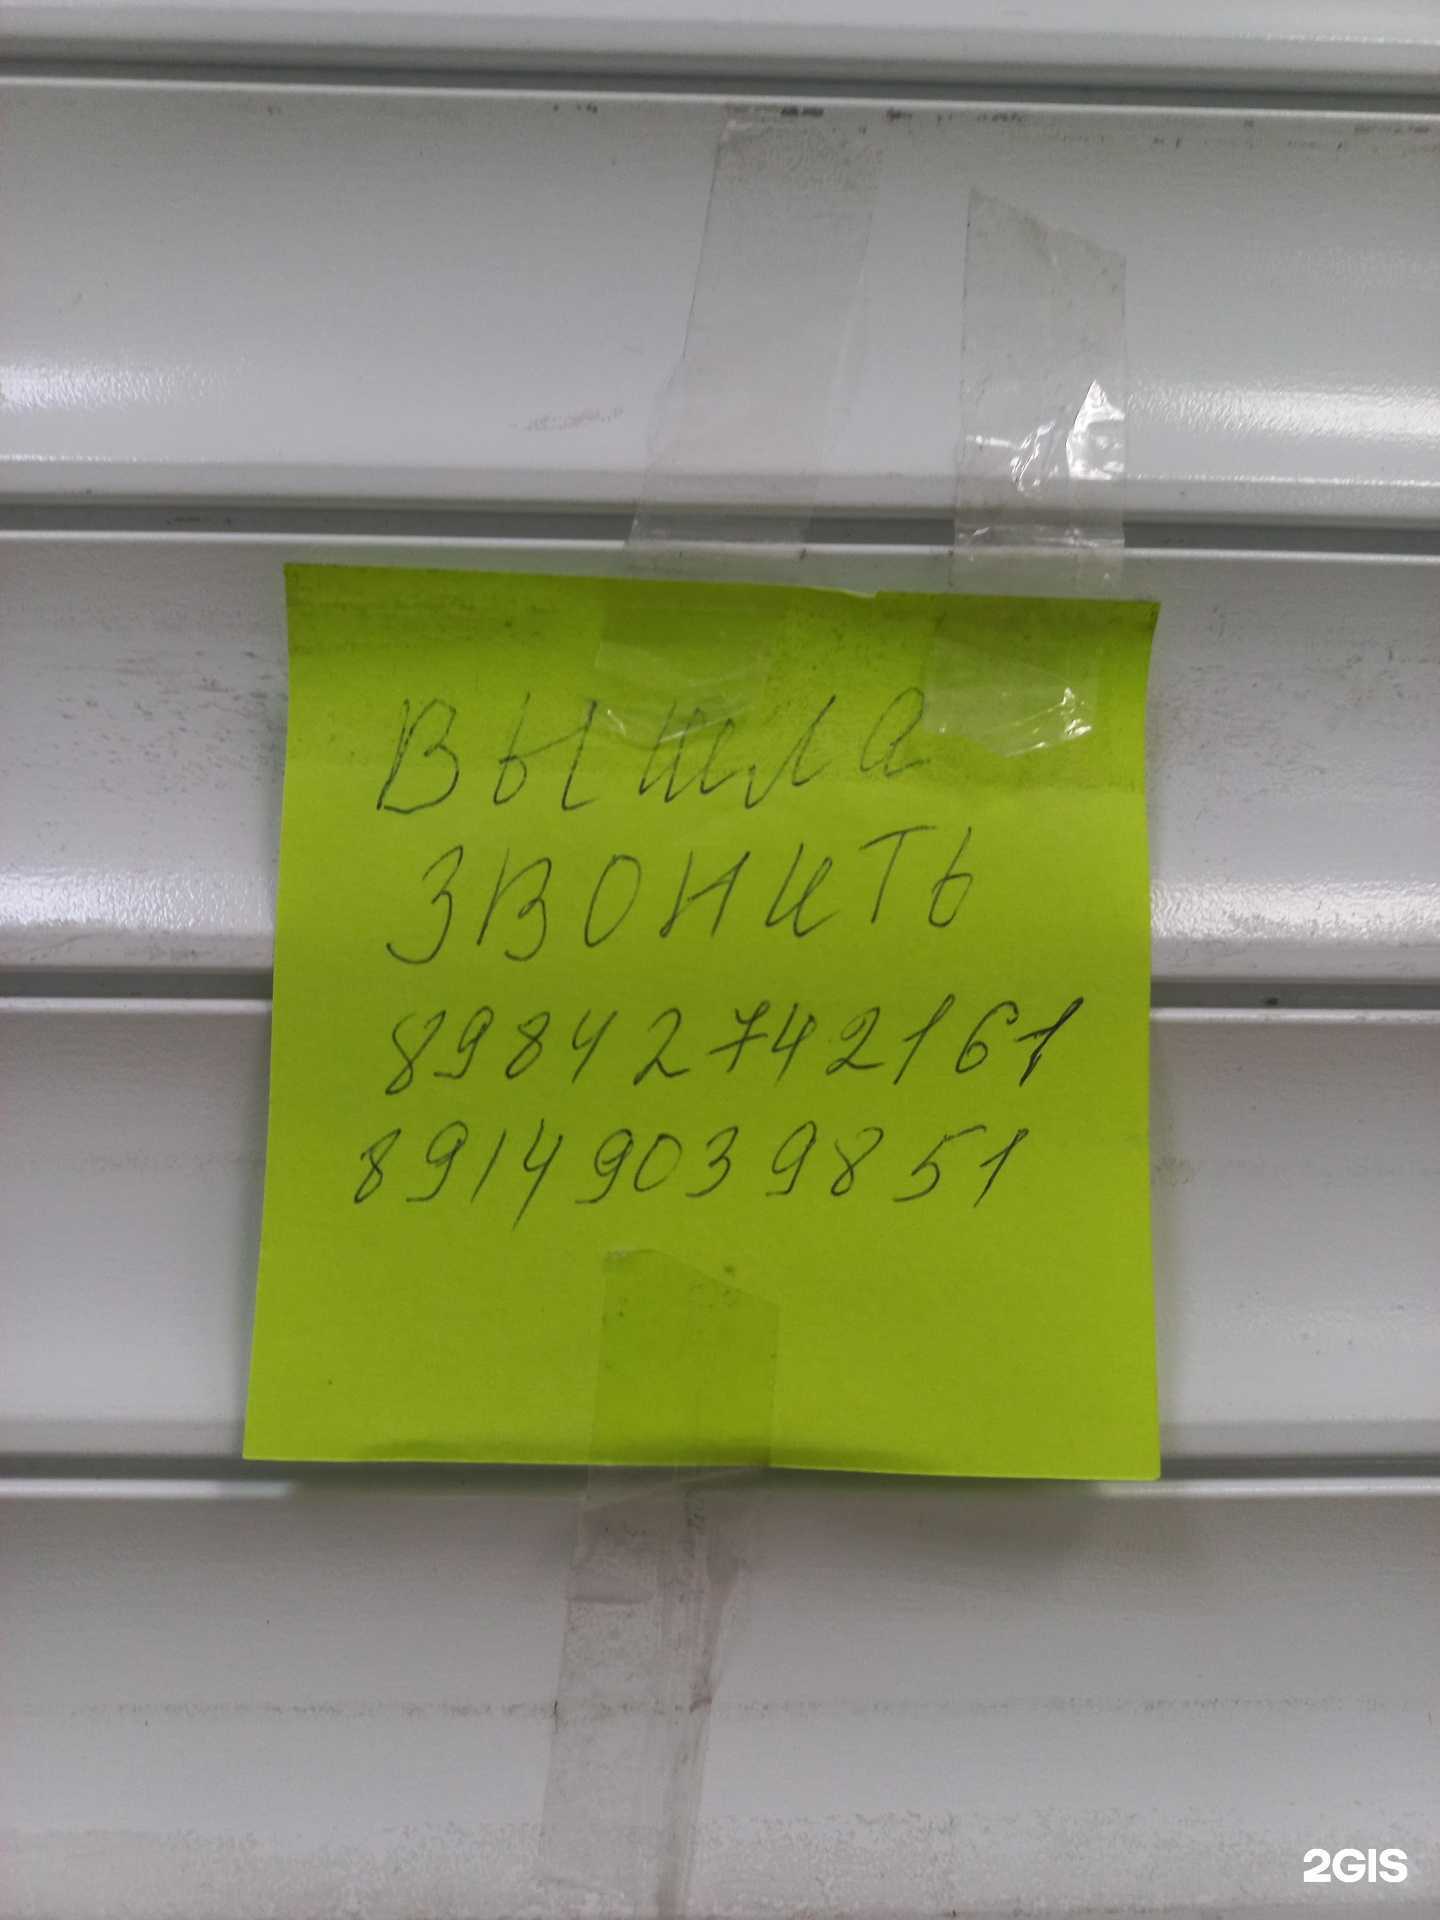 ВЫШЛА
ЗВОНИТЬ
89842742161
89149039851
2GIS